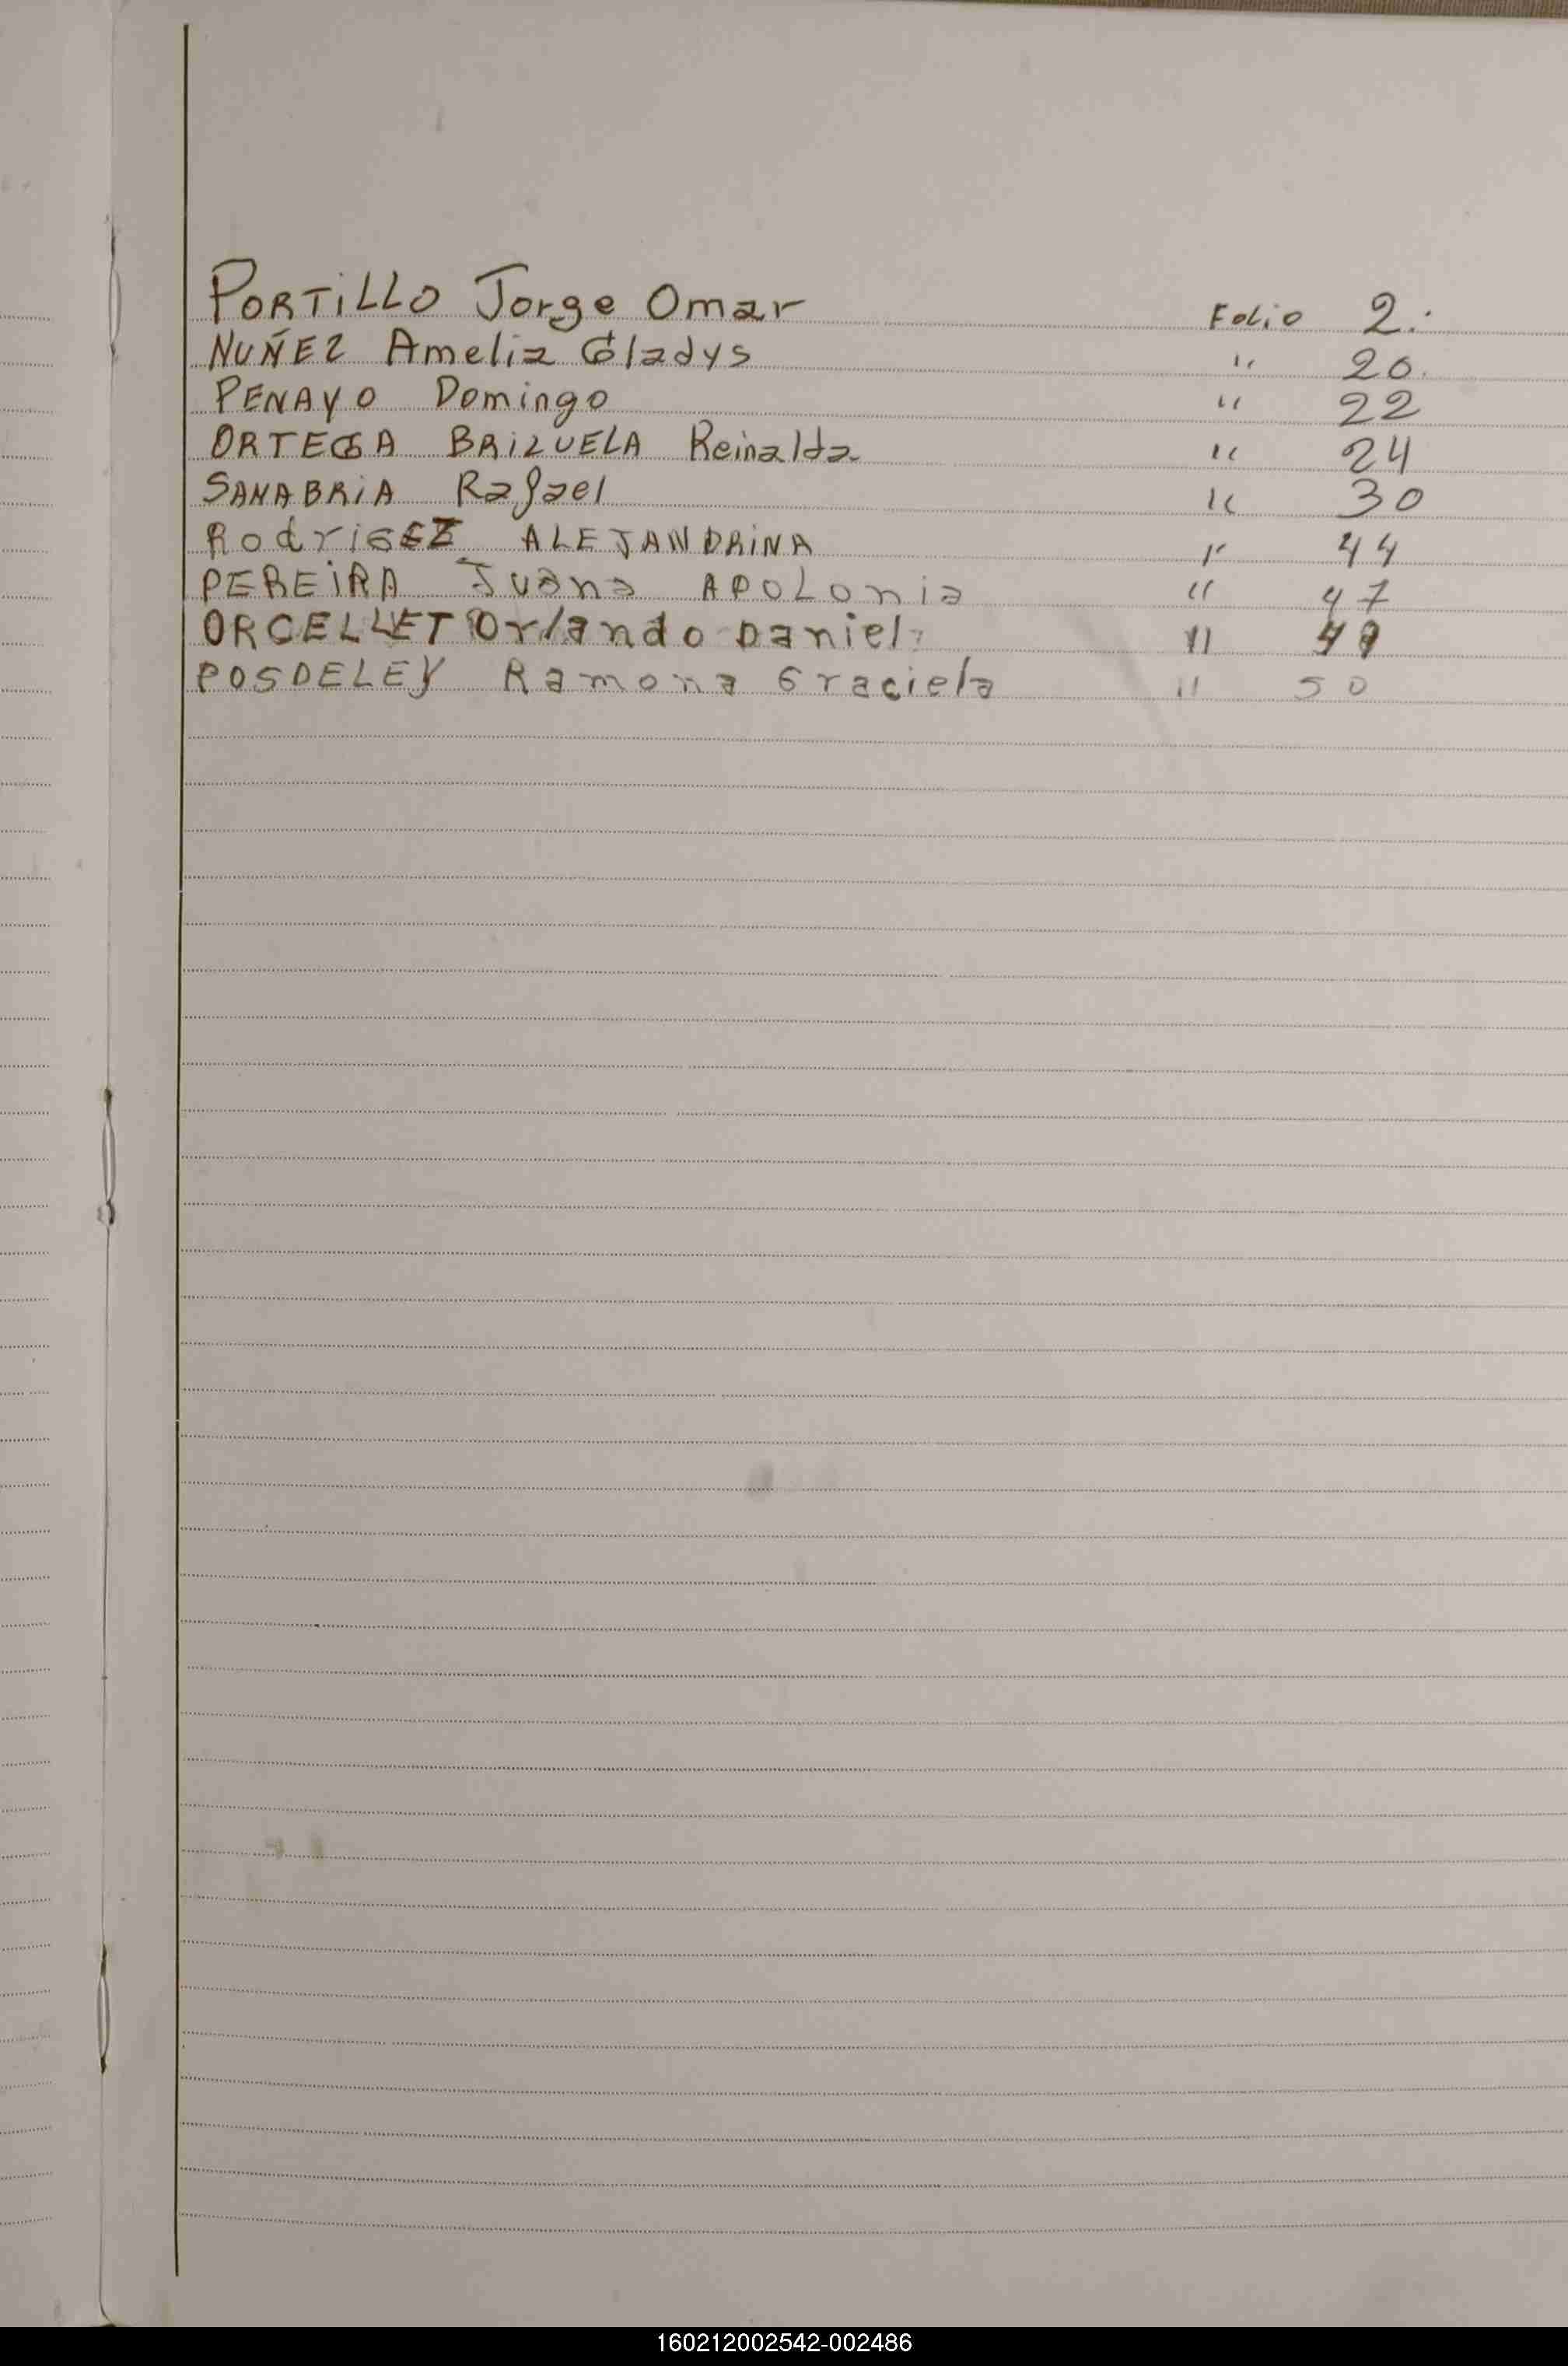 PORTILLO Jorge Omar Folio 2.
NUÑEZ Amelia Gladys " 20.
PENAYO Domingo " 22
ORTEGA BRIZUELA Reinalda " 24
SANABRIA Rafael " 30
RodriGEZ ALEJANDRINA " 44
PEREIRA Juana APOLonia " 47
ORCELLET Orlando Daniel "
POSDELEY Ramona Graciela " 50
160212002542-002486